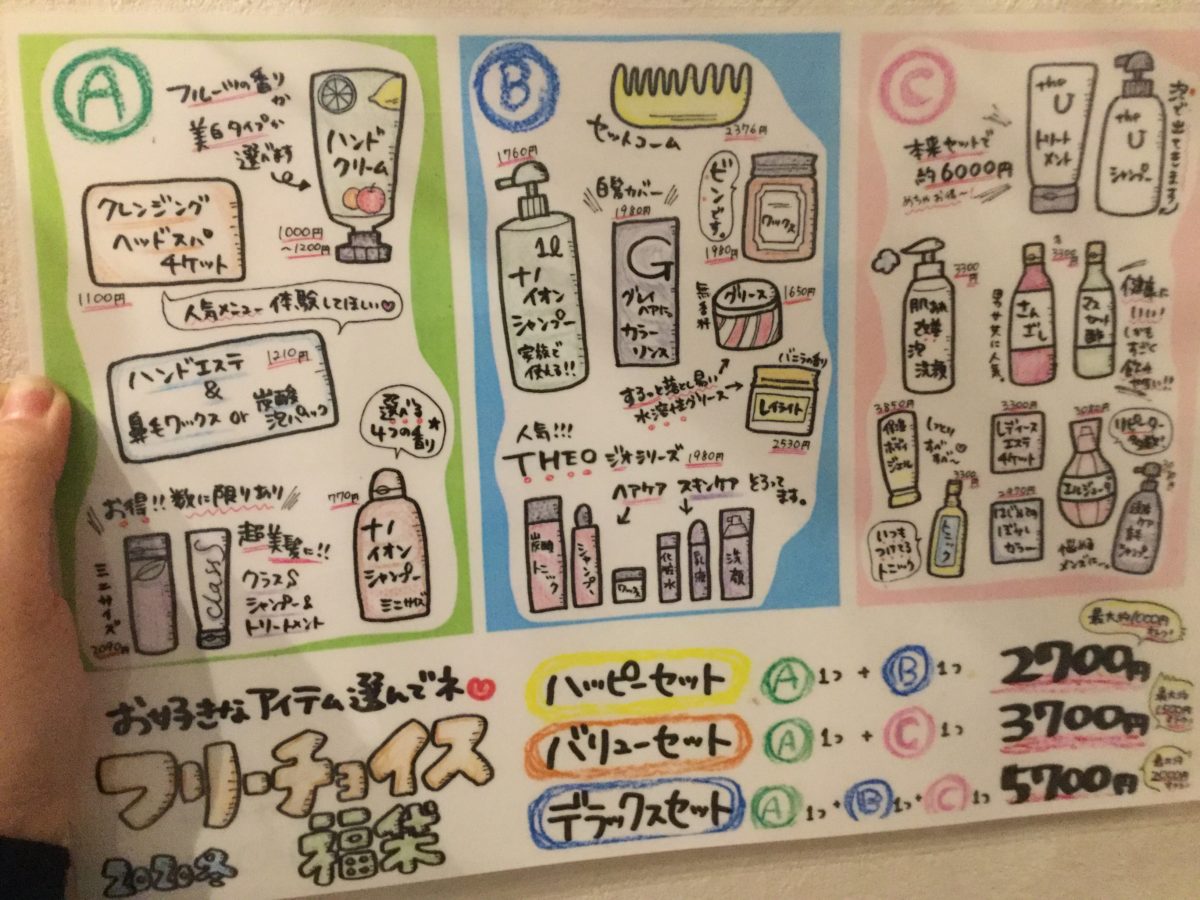 A
フルーツの香りか
美白タイプか
選べます
ハンド
クリーム
1000円
～1200円
クレンジング
ヘッドスパ
チケット
1100円
人気メニュー 体験してほしい
ハンドエステ
1210円
&
鼻毛ワックス or 炭酸
泥パック
選べる
4つの香り
お得!! 数に限りあり
770円
ナノ
イオン
シャンプー
ミニサイズ
ミニサイズ
2090円
classS
超美髪に!!
クラスS
シャンプー&
トリートメント
B
セットコーム
2376円
1760円
1ℓ
ナノ
イオン
シャンプー
家族で
使える!!
白髪カバー
1980円
G
グレイ
ヘアに
カラー
リンス
ビンです。
ワックス
1980円
無香料
グリース
1650円
するっと落とし易い
水溶性グリース
バニラの香り
レイライト
2530円
人気!!!
THEO ジオシリーズ 1980円
ヘアケア スキンケア そろってます。
炭酸
トニック
シャンプー
ワックス
化粧水
乳液
洗顔
C
本来セットで
約6000円
めちゃお得〜!
the
U
トリート
メント
the
U
シャンプー
泡で出てきます
3300円
肌
改善
泡
洗顔
男女女に人気。
さんざし
3300円
健康に
いい!
しかも
すごく
飲み
やすい!!
3850円
保湿
ボディ
ジェル
しっとり
すべ
すべ〜
3300円
レディース
エステ
チケット
3080円
エルジューダ
リピーター
いつも
つけてる
トニック
3300円
トニック
2970円
はじめての
ぼかし
カラー
悩める
メンズに〜。
頭皮
ケア
シャンプー
お好きなアイテム選んでネ
フリーチョイス
福袋
2020冬
ハッピーセット A1つ + B1つ 2700円
最大約1000円
オトク!
バリューセット A1つ + C1つ 3700円
最大約
1500円
オトク!
デラックスセット A1つ + B1つ + C1つ 5700円
最大約
2000円
オトク!